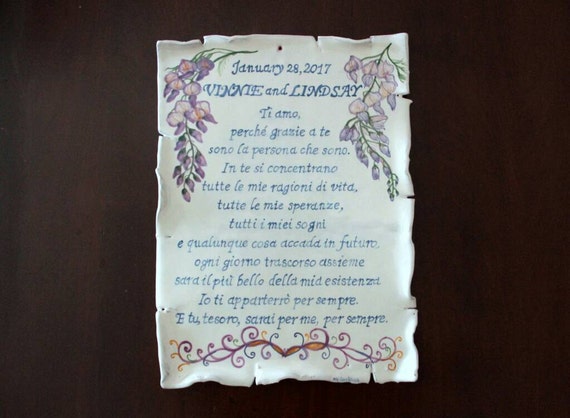 January 28, 2017
VINNIE and LINDSAY
Ti amo,
perché grazie a te
sono la persona che sono.
In te si concentrano
tutte le mie ragioni di vita,
tutte le mie speranze,
tutti i miei sogni
e qualunque cosa accada in futuro,
ogni giorno trascorso assieme
sara il più bello della mia esistenza
Io ti apparterrò per sempre.
E tu, tesoro, sarai per me, per sempre.